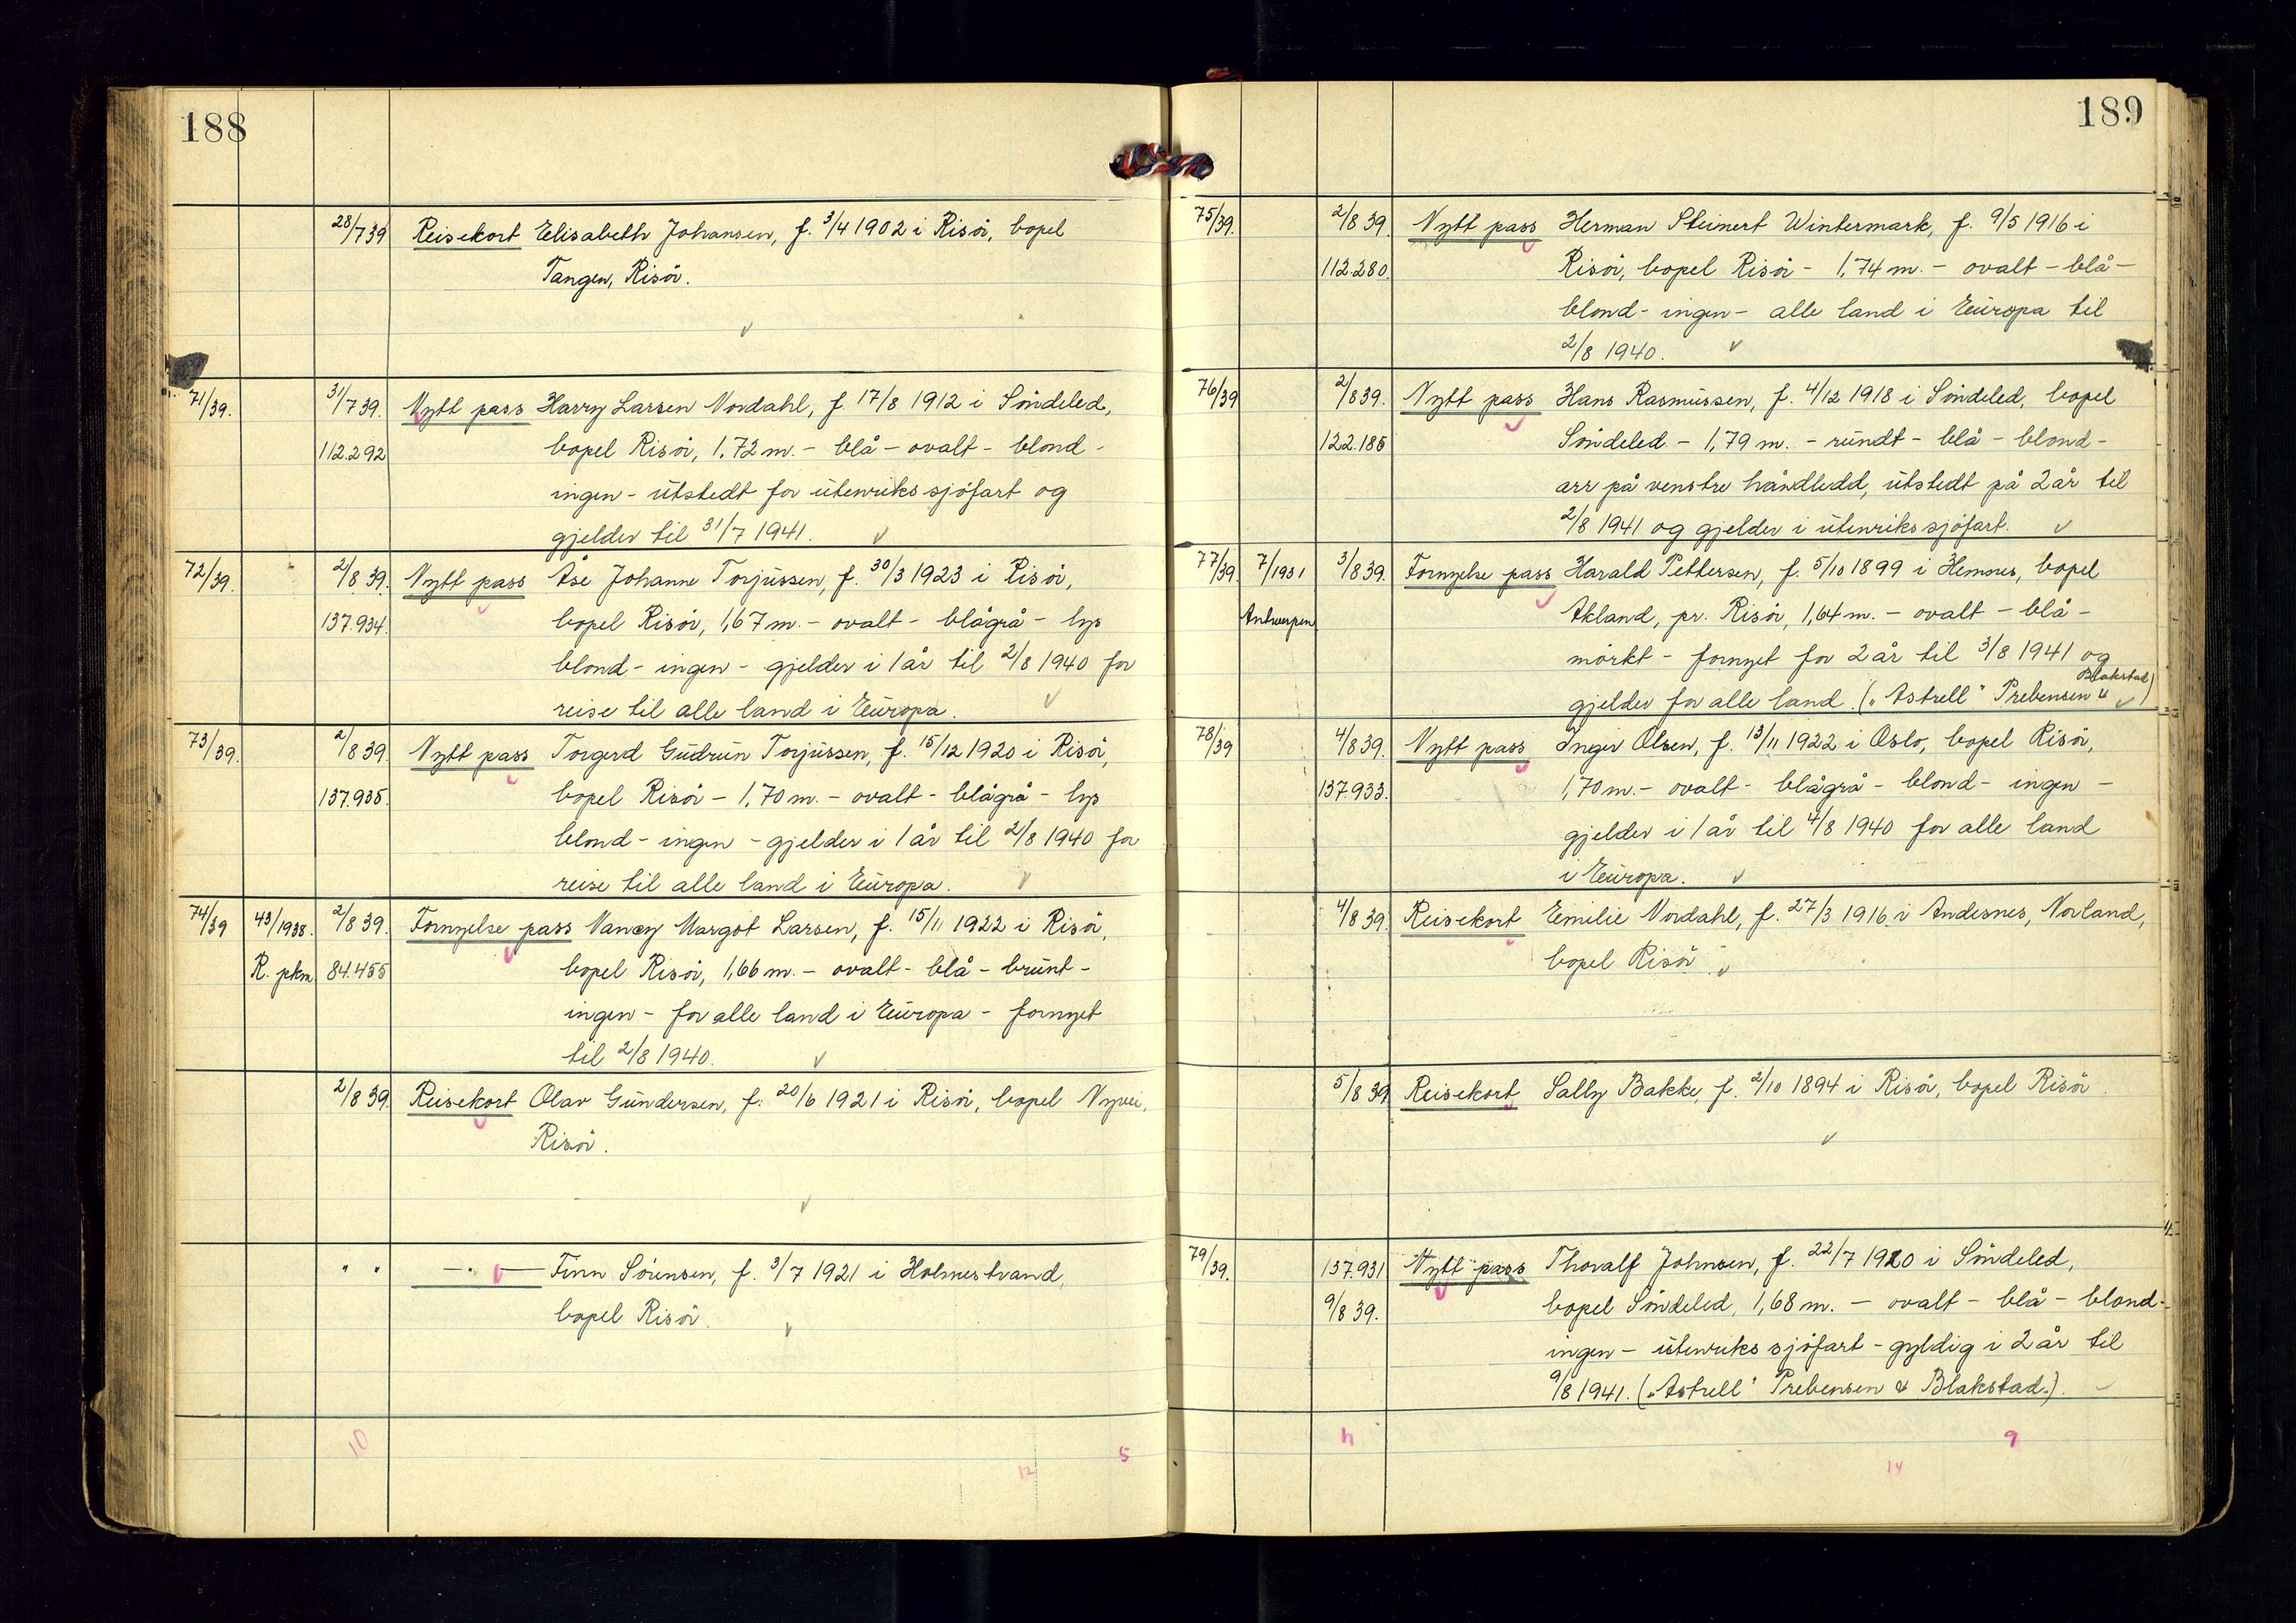 188
28/7 39 Reisekort Elisabeth Johansen, f. 3/4 1902 i Risör, bopel
Tangen, Risör.
71/39. 31/7 39. Nytt pass Harry Larsen Nordahl, f. 17/8 1912 i Söndeled,
112.292 bopel Risör, 1.72 m. - blå - ovalt - blond -
ingen - utstedt for utenriks sjöfart og
gjelder til 31/7 1941.
72/39. 2/8 39. Nytt pass Åse Johanne Torjussen, f. 30/3 1923 i Risör,
137.934. bopel Risör, 1,67 m. - ovalt - blågrå - lys
blond - ingen - gjelder i 1 år til 2/8 1940 for
reise til alle land i Europa.
73/39. 2/8 39. Nytt pass Torgerd Gudrun Torjussen, f. 15/12 1920 i Risör,
137.935. bopel Risör - 1,70 m. - ovalt - blågrå - lys
blond - ingen - gjelder i 1 år til 2/8 1940 for
reise til alle land i Europa.
74/39 43/1938. 2/8 39. Fornyelse pass Nancy Margot Larsen, f. 15/11 1922 i Risör,
R. pkm 84.455 bopel Risör, 1,66 m. - ovalt - blå - brunt -
ingen - for alle land i Europa - fornyet
til 2/8 1940.
2/8 39. Reisekort Olav Gundersen, f. 20/6 1921 i Risör, bopel Nyvei,
Risör.
" " —"— Finn Sörensen, f. 3/7 1921 i Holmestrand,
bopel Risör.
10 12 5
189
75/39. 2/8 39. Nytt pass Herman Steinert Wintermark, f. 9/5 1916 i
112.280. Risör, bopel Risör - 1,74 m. - ovalt - blå -
blond - ingen - alle land i Europa til
2/8 1940.
76/39 2/8 39. Nytt pass Hans Rasmussen, f. 4/12 1918 i Söndeled, bopel
122.185 Söndeled - 1,79 m. - rundt - blå - blond -
arr på venstre håndledd, utstedt på 2 år til
2/8 1941 og gjelder i utenriks sjöfart.
77/39. 7/1931 3/8 39. Fornyelse pass Harald Pettersen, f. 5/10 1899 i Hemnes, bopel
Antwerpen Akland, pr. Risör, 1,64 m. - ovalt - blå -
mörkt - fornyet for 2 år til 3/8 1941 og
gjelder for alle land. („Astrell" Prebensen & Blakstad)
78/39 4/8 39. Nytt pass Inger Olsen, f. 13/11 1922 i Oslo, bopel Risör,
137.933. 1,70 m. - ovalt - blågrå - blond - ingen -
gjelder i 1 år til 4/8 1940 for alle land
i Europa.
4/8 39. Reisekort Emilie Nordahl, f. 27/3 1916 i Andesnes, Norland,
bopel Risör.
5/8 39 Reisekort Sally Bakke, f. 2/10 1894 i Risör, bopel Risör.
79/39. 137.931 Nytt pass Thoralf Johnsen, f. 22/7 1920 i Söndeled,
9/8 39. bopel Söndeled, 1,68 m. - ovalt - blå - blond -
ingen - utenriks sjöfart - gyldig i 2 år til
9/8 1941. („Astrell" Prebensen & Blakstad.).
9
14